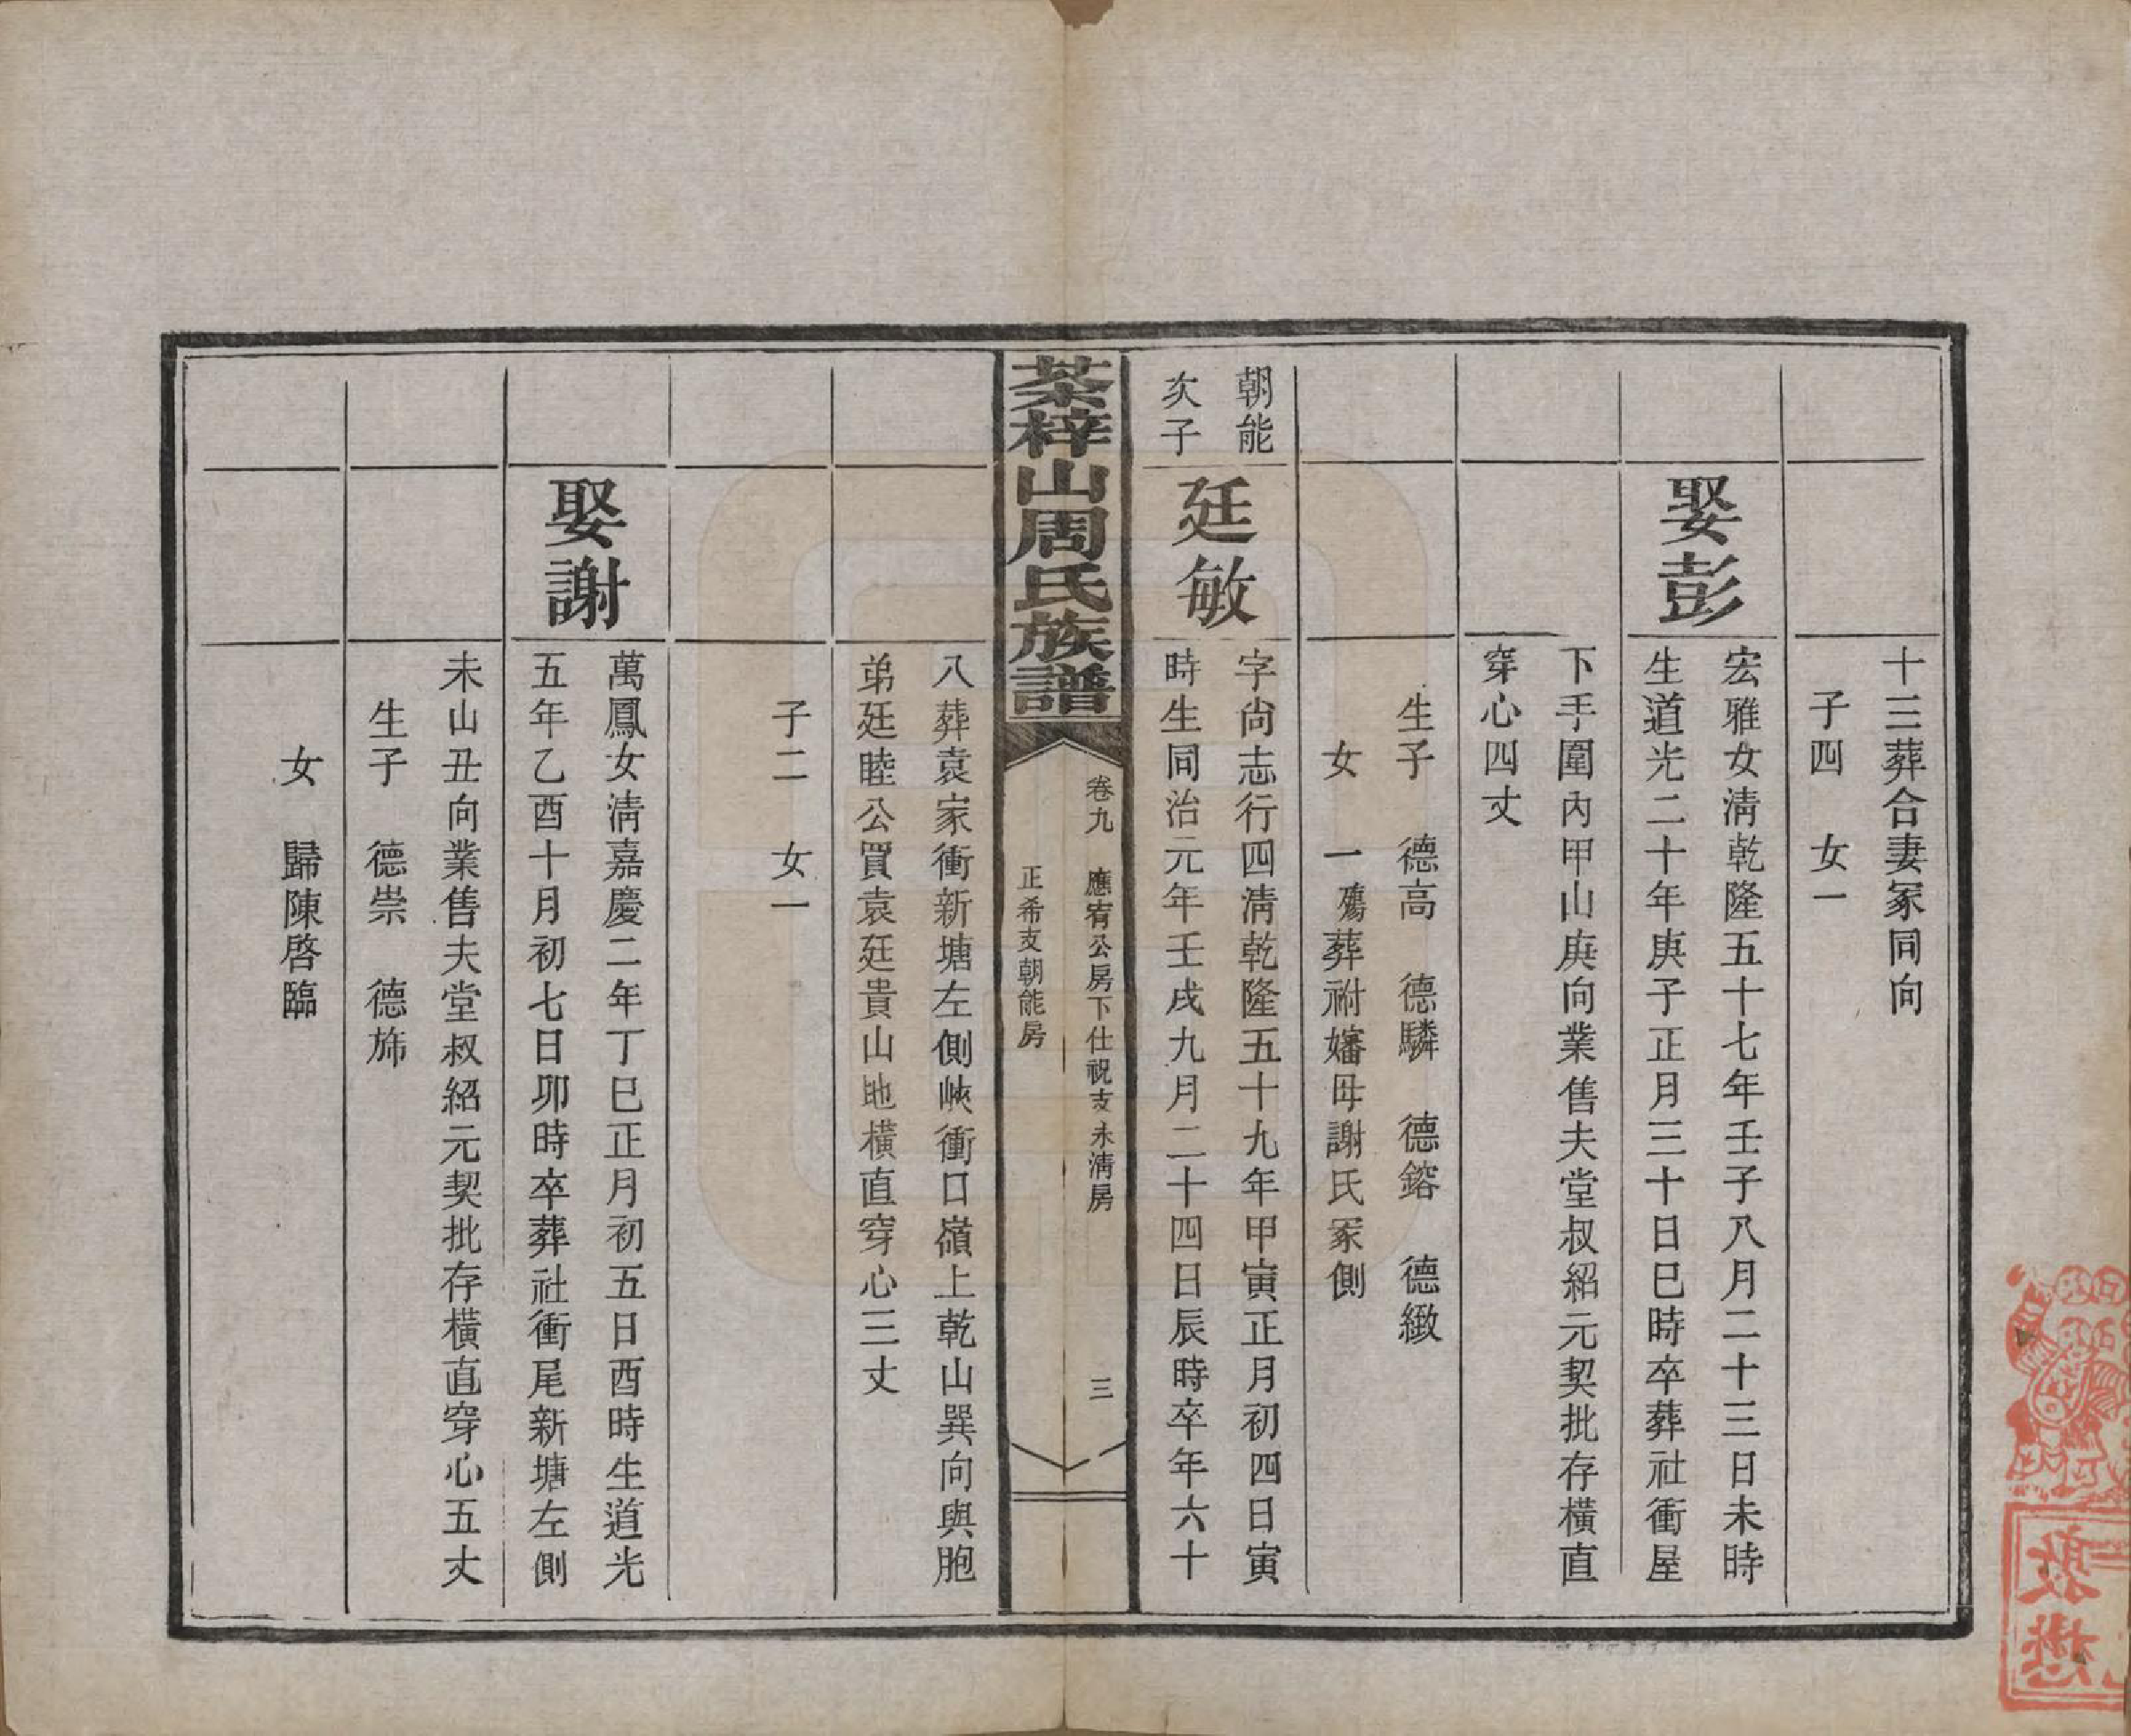 十三葬合妻冢同向
子四 女一
娶彭
宏雅女淸乾隆五十七年壬子八月二十三日未時
生道光二十年庚子正月三十日巳時卒葬社衝屋
下手圍內甲山庚向業售夫堂叔紹元契批存橫直
穿心四丈
生子 德高 德驎 德鎔 德緻
女 一殤葬祔嬸母謝氏冢側
朝能
次子
廷敏
字尙志行四淸乾隆五十九年甲寅正月初四日寅
時生同治元年壬戌九月二十四日辰時卒年六十
茶梓山周氏族譜
卷九 應宥公房下仕祝支永淸房
正希支朝能房
三
八葬袁家衝新塘左側峽衝口嶺上乾山巽向與胞
弟廷睦公買袁廷貴山地橫直穿心三丈
子二 女一
娶謝
萬鳳女淸嘉慶二年丁巳正月初五日酉時生道光
五年乙酉十月初七日卯時卒葬社衝尾新塘左側
未山丑向業售夫堂叔紹元契批存橫直穿心五丈
生子 德崇 德斾
女 歸陳啓臨